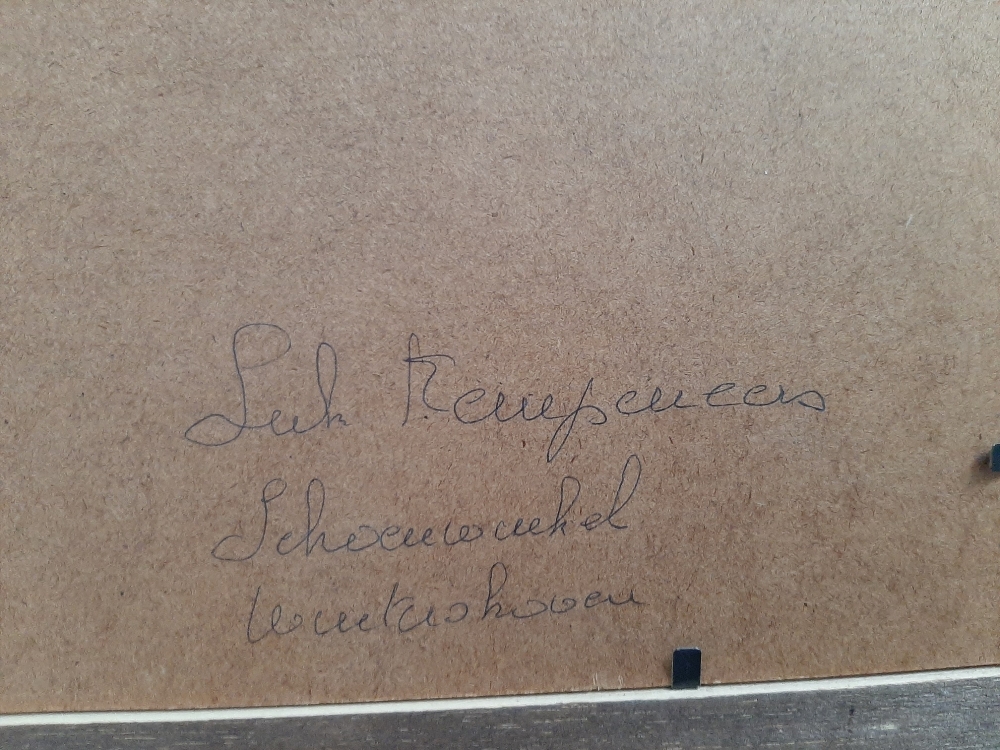 Luk Kempeneers
Schoenwinkel
Wintershoven